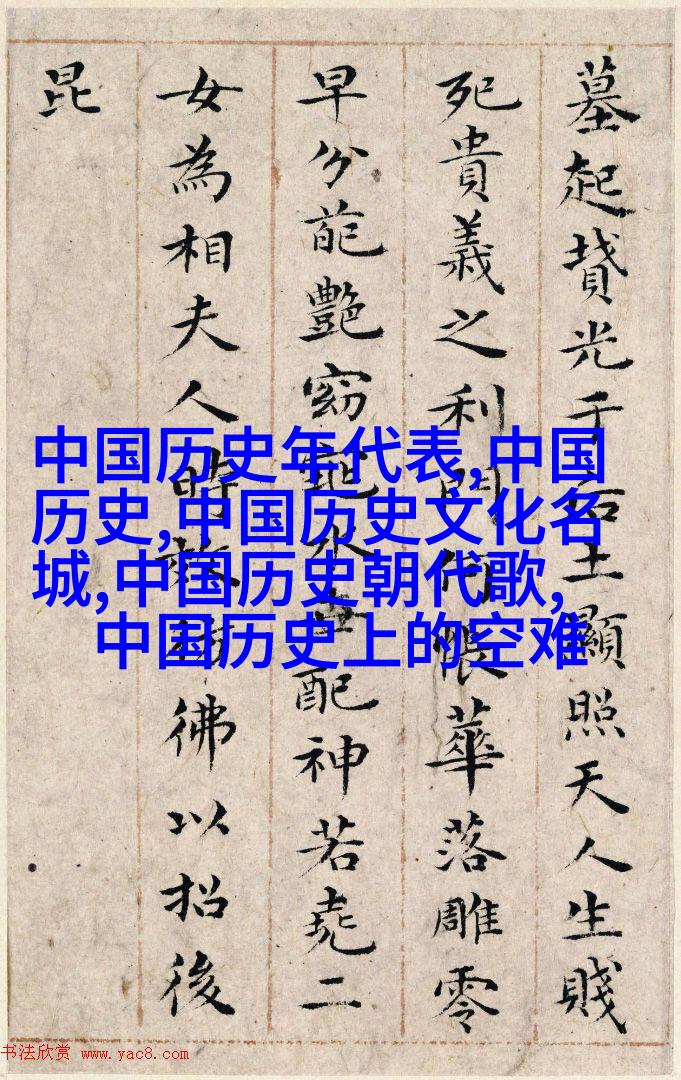 墓起墳光于后土顯照天人生賤
死貴義之利門何悵華落雕零
早分葩艷窈窕永世配神若堯二
女為相夫人時效佛以招後
昆
中国历史年代表,中国
历史,中国历史文化名
城,中国历史朝代歌,
中国历史上的空难
书法欣赏 www.yac8.com